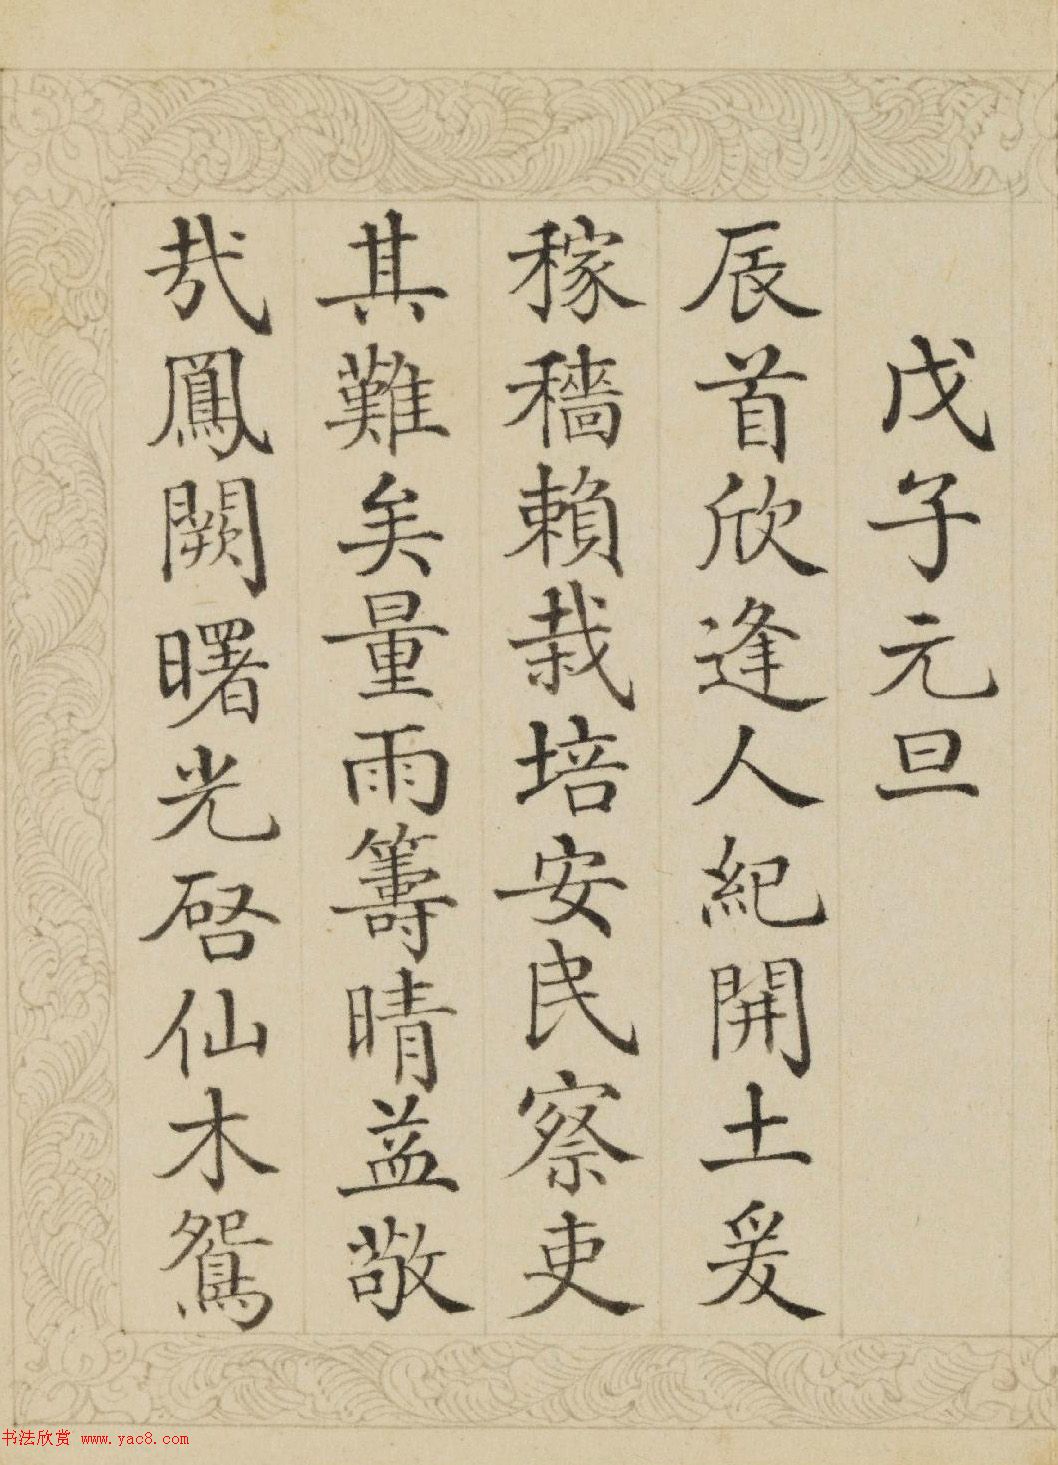 戊子元旦
辰首欣逢人紀開土爰
稼穡賴栽培安民察吏
其難矣量雨籌晴益敬
哉鳳闕曙光啓仙木鴛
书法欣赏 www.yac8.com